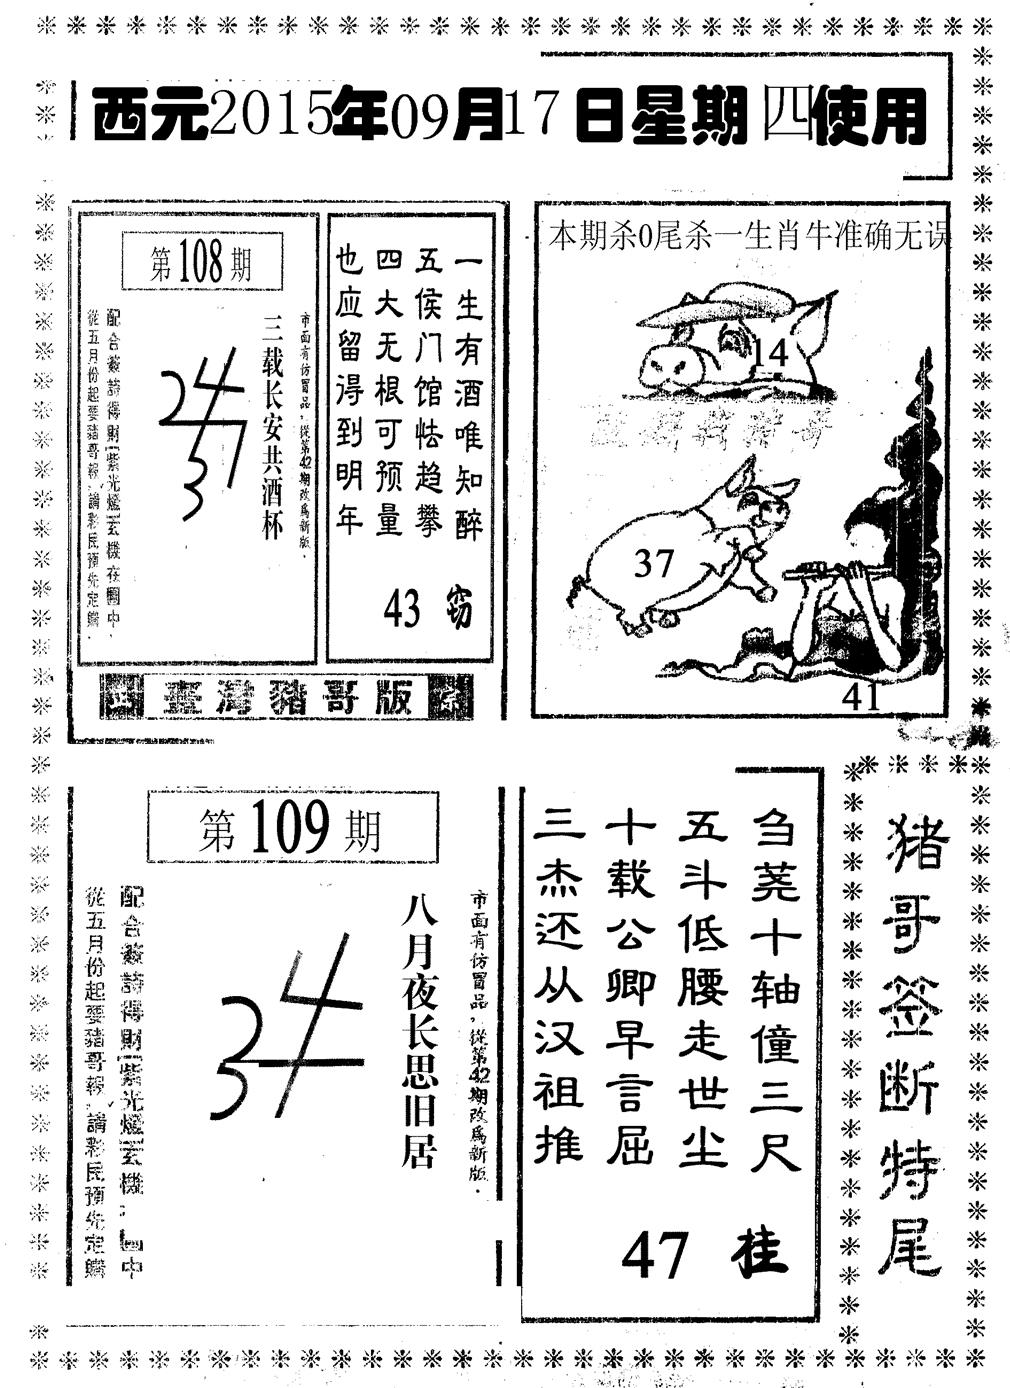 西元2015年09月17日星期四使用
第108期
市面有仿冒品，從第42期改為新版．
三载长安共酒杯
24
37
配合簽詩得財
紫光燈
玄機在圖中．
從五月份起要豬哥報
請彩民預先定購．
一生有酒唯知醉
五侯门馆怯趋攀
四大无根可预量
也应留得到明年
43 窃
臺灣豬哥版
本期杀0尾杀一生肖牛准确无误
14
37
41
第109期
市面有仿冒品，從第42期改為新版．
八月夜长思旧居
24
34
配合簽詩得財
紫光燈
玄機
中
從五月份起要豬哥報
請彩民預先定購
刍荛十轴僮三尺
五斗低腰走世尘
十载公卿早言屈
三杰还从汉祖推
47 桂
猪哥签断特尾